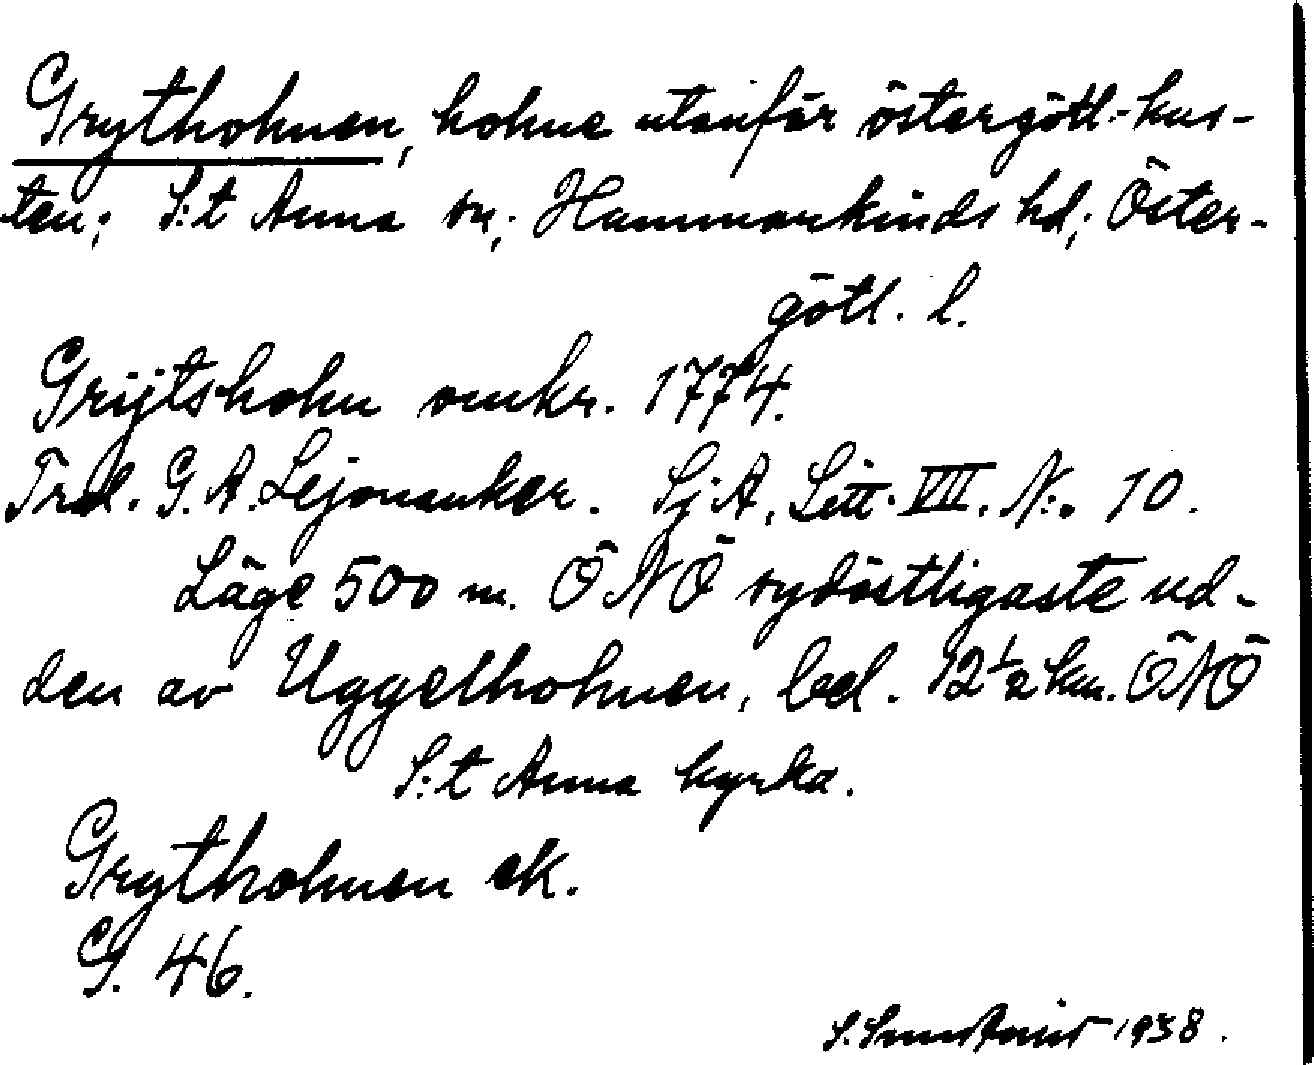 Grytholmen, holme utanför östergötl. kus-
ten; S:t Anna sn; Hammarkinds hd; Öster-
götl. l.
Grijtsholm omkr. 1774.
Trol. G. A. Lejonanker. Sj A, Litt. VII. N:o 10.
Läge 500 m. ÖNÖ sydöstligaste ud-
den av Uggelholmen, bel. 12½ km. ÖNÖ
S:t Anna kyrka.
Grytholmen ek.
G. 46.
S. 1938.